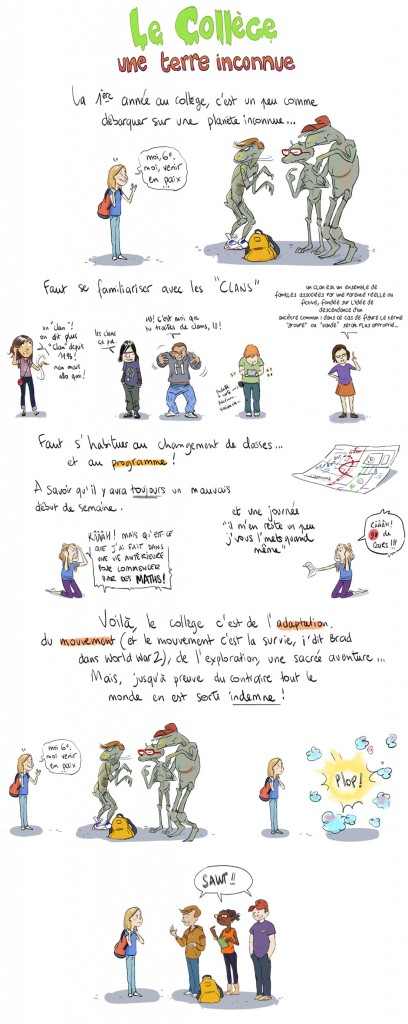 Le Collège
une terre inconnue
La 1ère année au collège, c'est un peu comme
débarquer sur une planète inconnue...
moi, 6e.
moi, venir
en paix
Faut se familiariser avec les "CLANS"
un "clan"!
on dit plus
"clan" depuis
non mais
allo quoi!
les clans
ça pue.
Yo! c'est moi que
tu traites de clans, là!
un clan est un ensemble de
familles associées par une parenté réelle ou
fictive, fondée sur l'idée de
descendance d'un
ancêtre commun! dans ce cas de figure le terme
"groupe" ou "bande" serait plus approprié...
Faut s'habituer au changement de classes...
et au programme!
A savoir qu'il y aura toujours un mauvais
début de semaine.
RÂÂÂH! mais qu'est ce
que j'ai fait dans
une vie antérieure
pour commencer
par des MATHS!
et une journée
"il m'en reste un peu
j'vous l'mets quand
même"
RÂÂÂH!
de
cours!!!
Voilà, le collège c'est de l'adaptation,
du mouvement (et le mouvement c'est la survie, j'dit Brad
dans World War Z), de l'exploration, une sacrée aventure...
Mais, jusqu'à preuve du contraire tout le
monde en est sorti indemne!
moi 6e.
moi, venir
en paix
PLOP!
SALUT!!